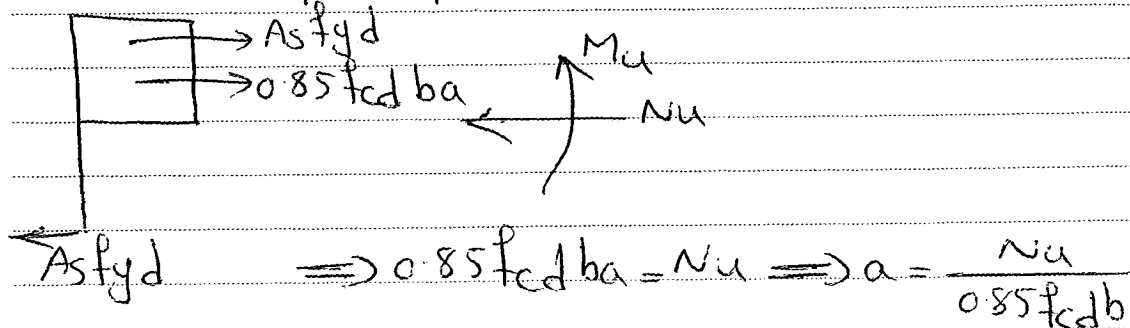 Asfyd
0.85fcd ba
Mu
Nu
Asfyd ⟹ 0.85fcd ba = Nu ⟹ a = Nu / 0.85fcd b